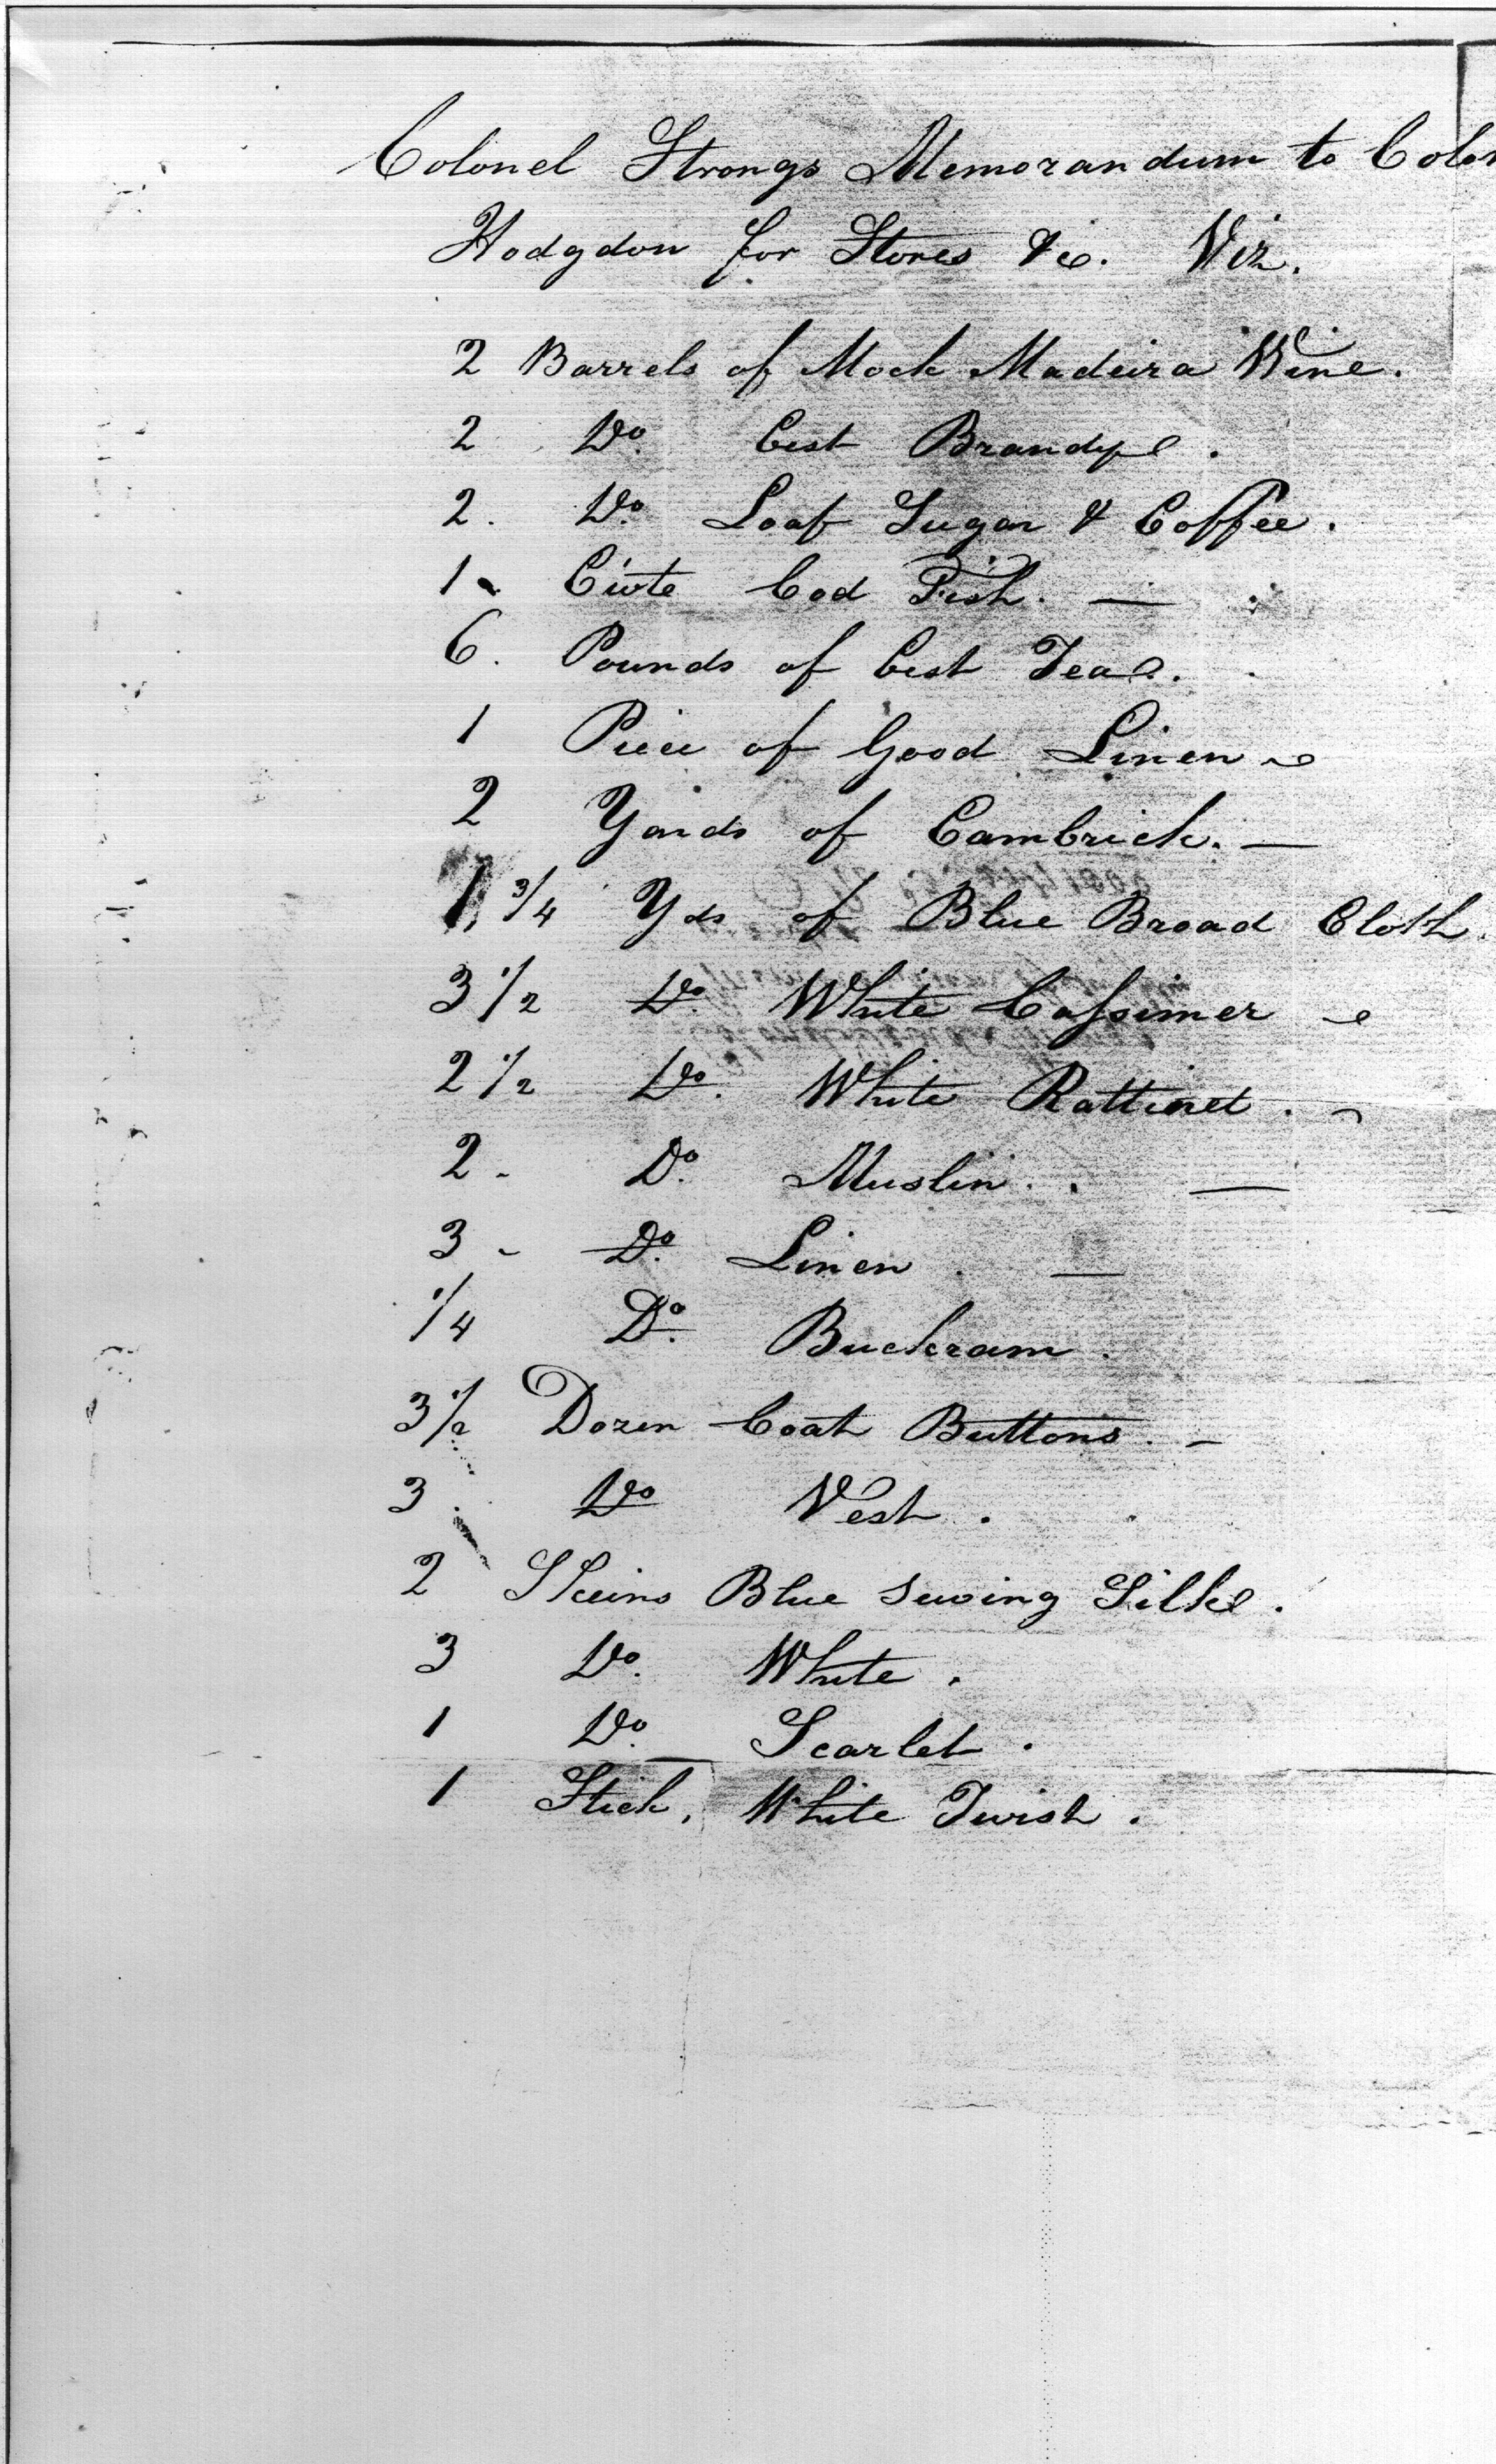 Colonel Strongs Memorandum to Colon
Hodgdon for Stores &c. Viz.
2 Barrels of Mock Madeira Wine.
2 Do. best Brandy.
2. Do. Loaf Sugar & Coffee.
1. Cwte Cod Fish. —
6. Pounds of best Tea.
1 Piece of Good Linen
2 Yards of Cambrick. —
1 3/4 Yds of Blue Broad Cloth.
3 1/2 Do. White Cassimer
2 1/2 Do. White Rattinet.
2 - Do. Muslin. —
3 - Do. Linen. —
1/4 Do. Buckram.
3 1/2 Dozen Coat Buttons. -
3. Do Vest.
2 Skeins Blue Sewing Silk.
3 Do. White.
1 Do. Scarlet.
1 Stick, White Twist.